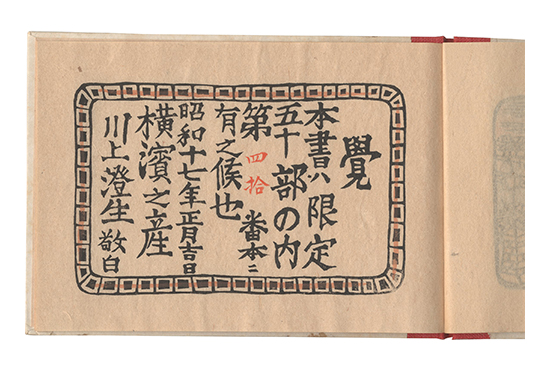 覺
本書ハ限定
五十部の内
第四拾番本ニ
有之候也
昭和十七年正月吉日
横濱之産
川上澄生敬白